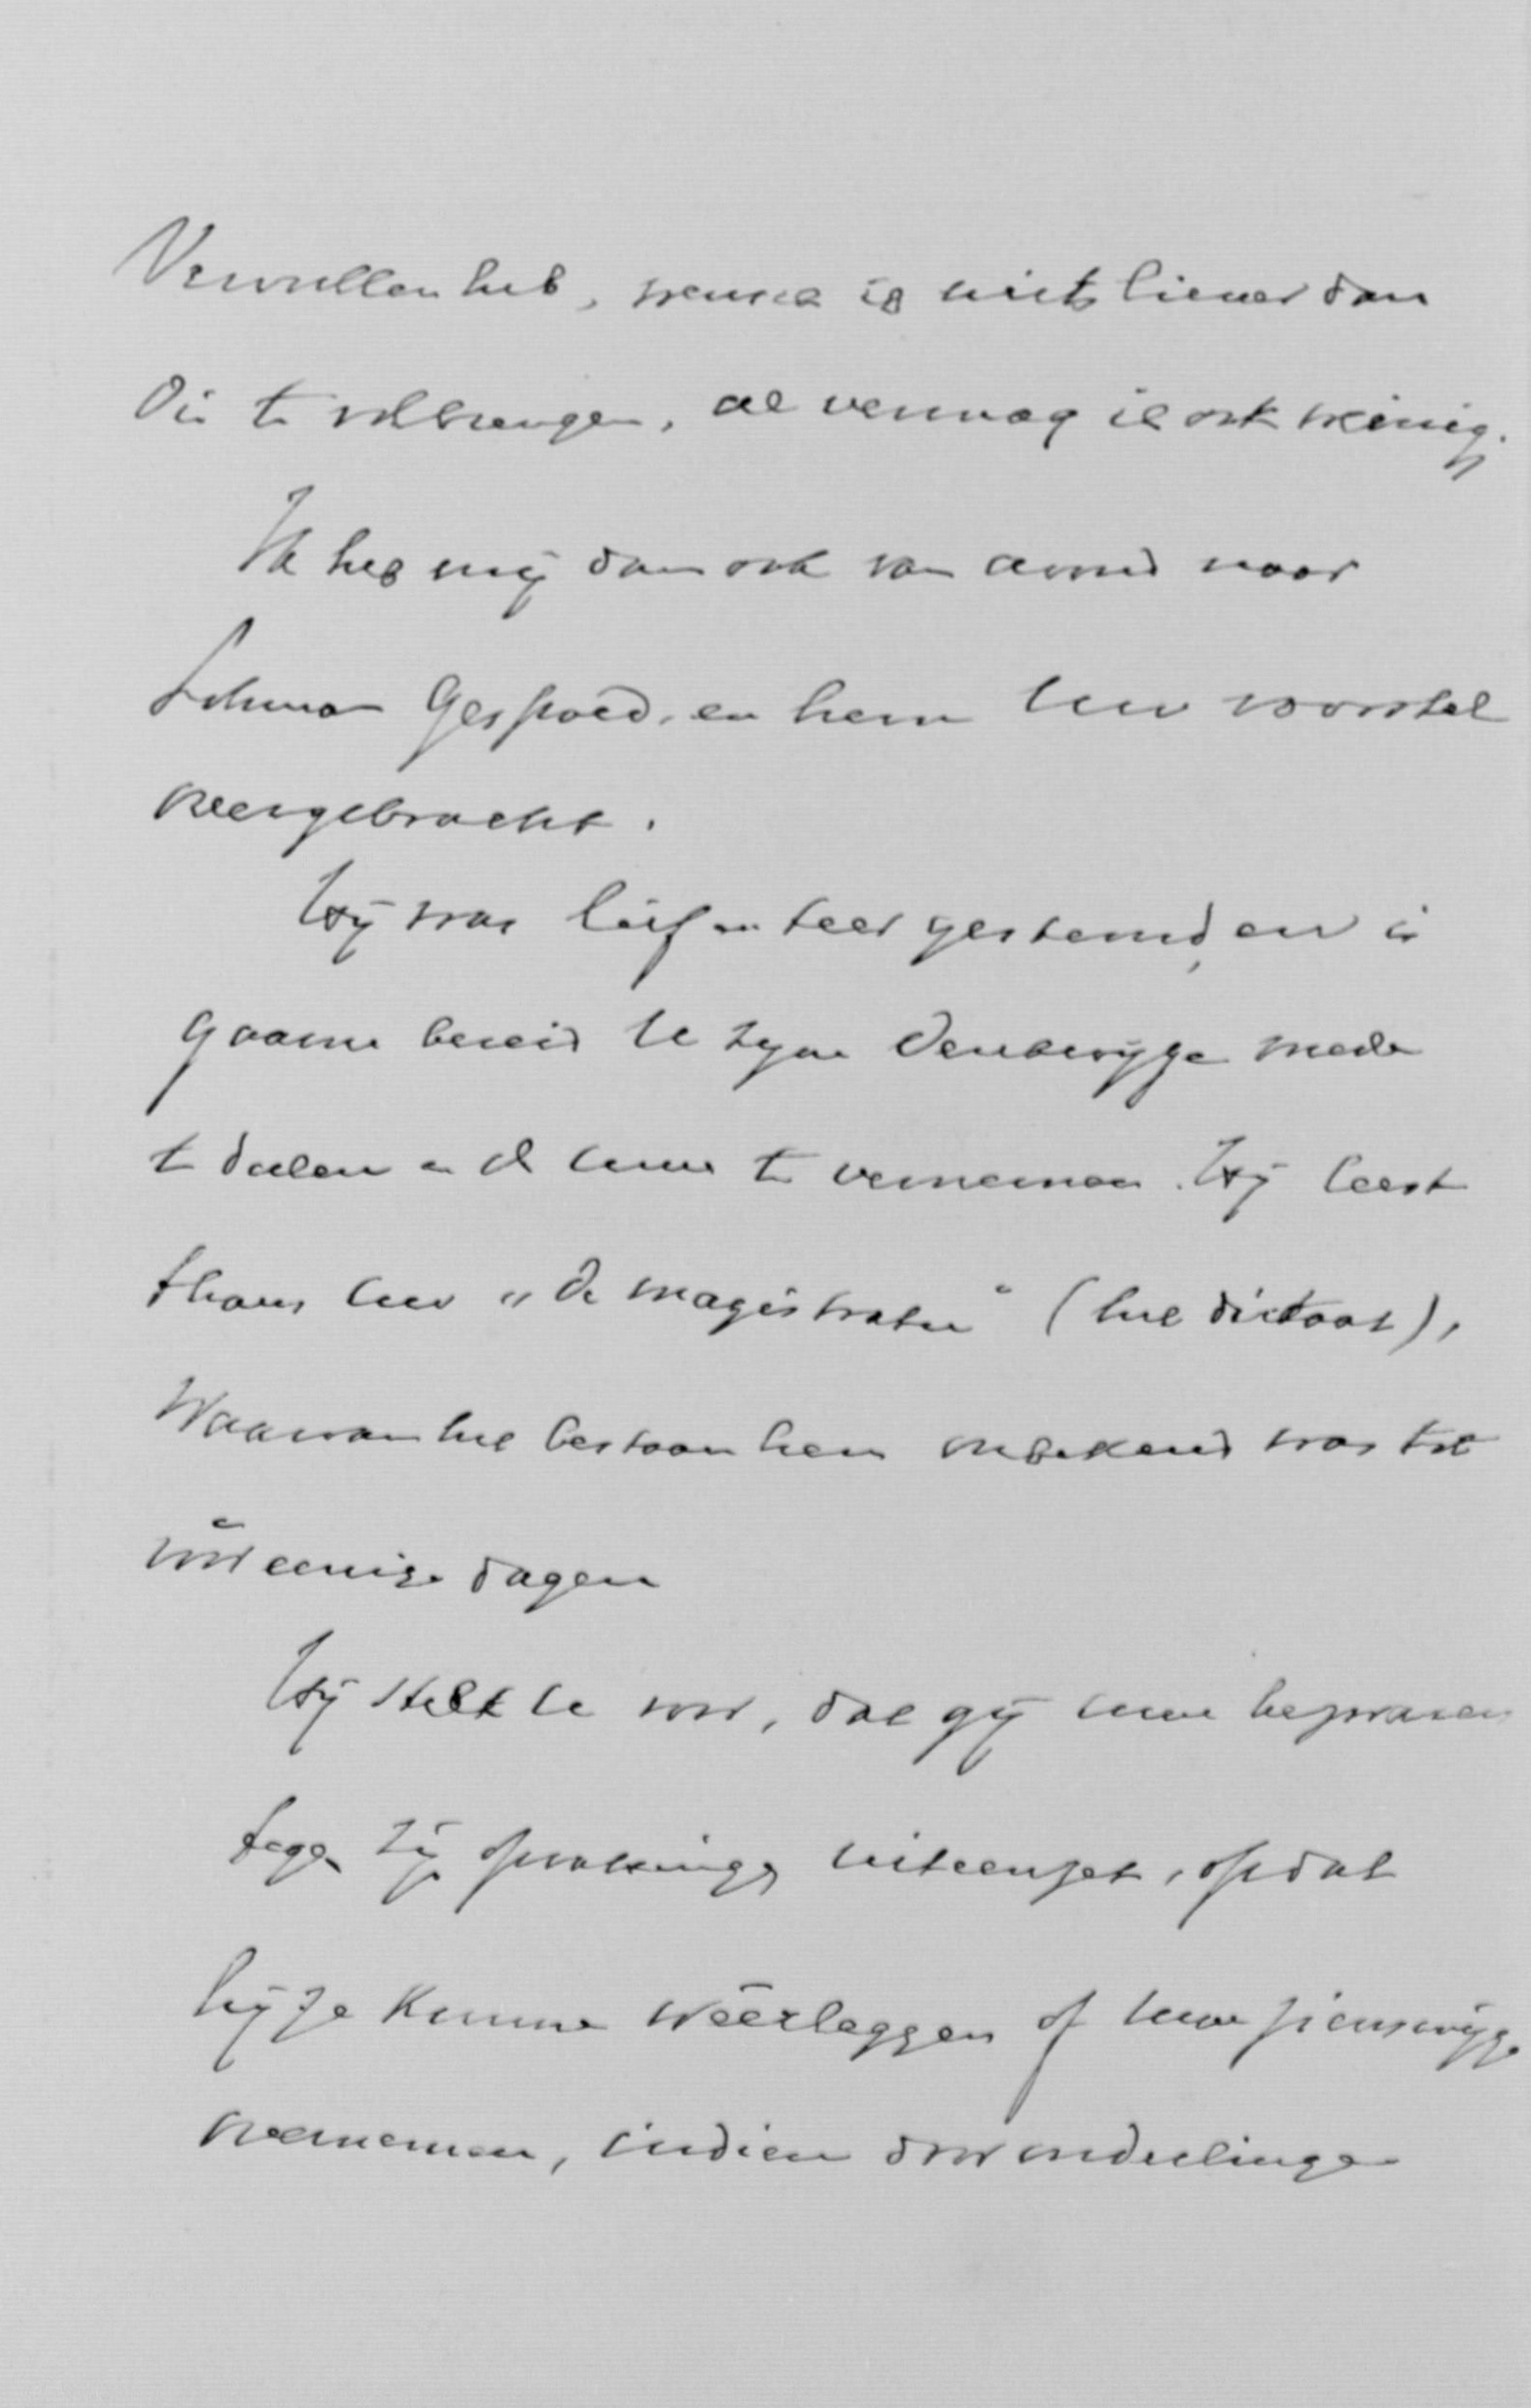 Vervullen heb, wensch ik niets liever dan
die te volbrengen, al vermag ik ook weinig.
Ik heb mij dan ook van avond naar
Lohman gespoed, en hem Uw voorstel
overgebracht.
Hij was lief en teer gestemd, en is
gaarne bereid U zijne denkwijze mede
te deelen en de Uwe te vernemen. Hij leest
thans Uw „de magistratu" (het dictaat),
Waarvan het bestaan hem onbekend was tot
vóór eenige dagen
Hij stelt U voor, dat gij Uwe bezwaren
tegen zijn opvattingen uiteenzet, opdat
hij ze kunne wêerleggen of Uwe zienswijze
overnemen, indien door onderlinge